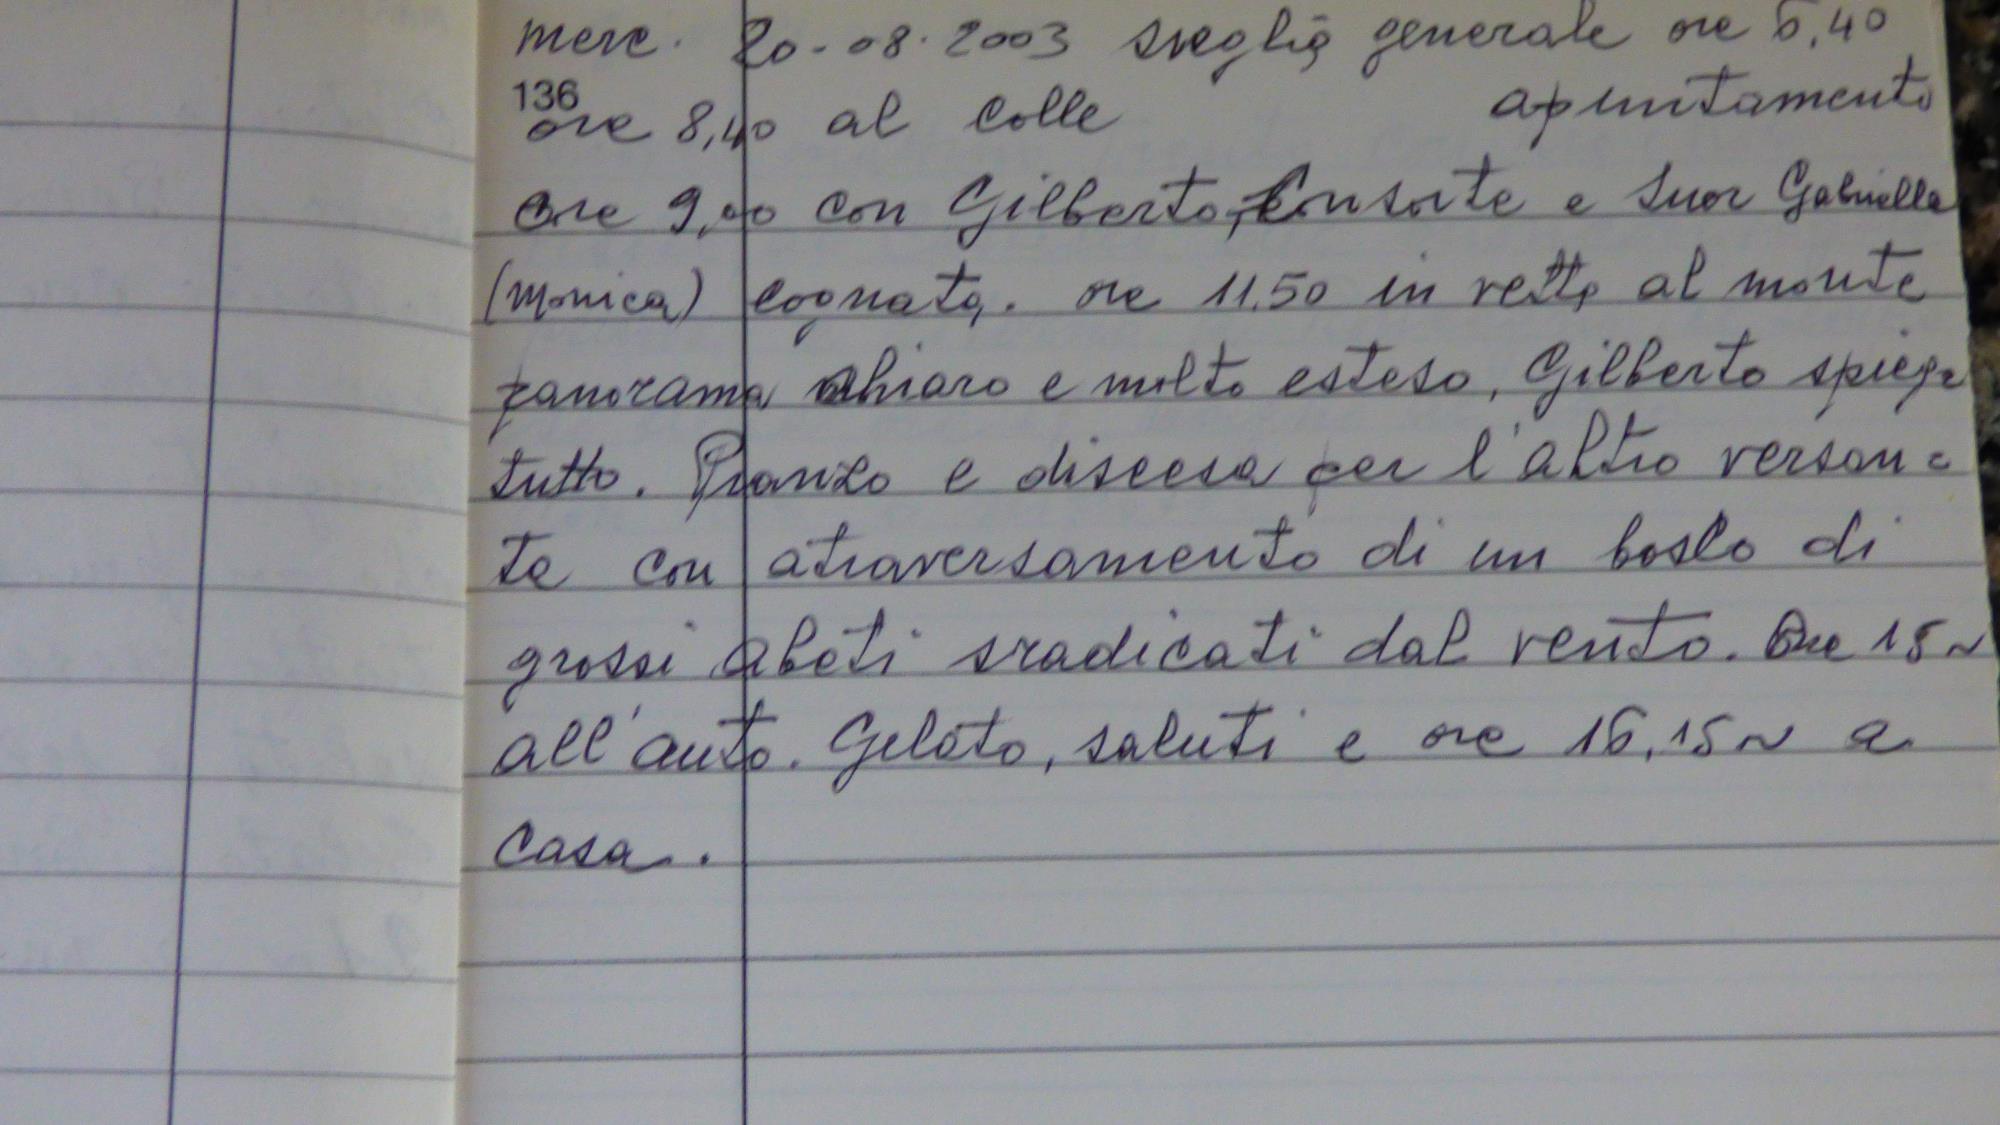 merc. 20-08-2003 sveglia generale ore 5,40
136
ore 8,40 al Colle apuntamento
ore 9,00 con Gilberto, Consorte e Suor Gabriella
(Monica) cognata. ore 11.50 in vetta al monte
panorama chiaro e molto esteso, Gilberto spiega
tutto. Pranzo e discesa per l'altro versan=
te con atraversamento di un bosco di
grossi abeti sradicati dal vento. Ore 15~
all'auto. Gelato, saluti e ore 16,15~ a
casa.